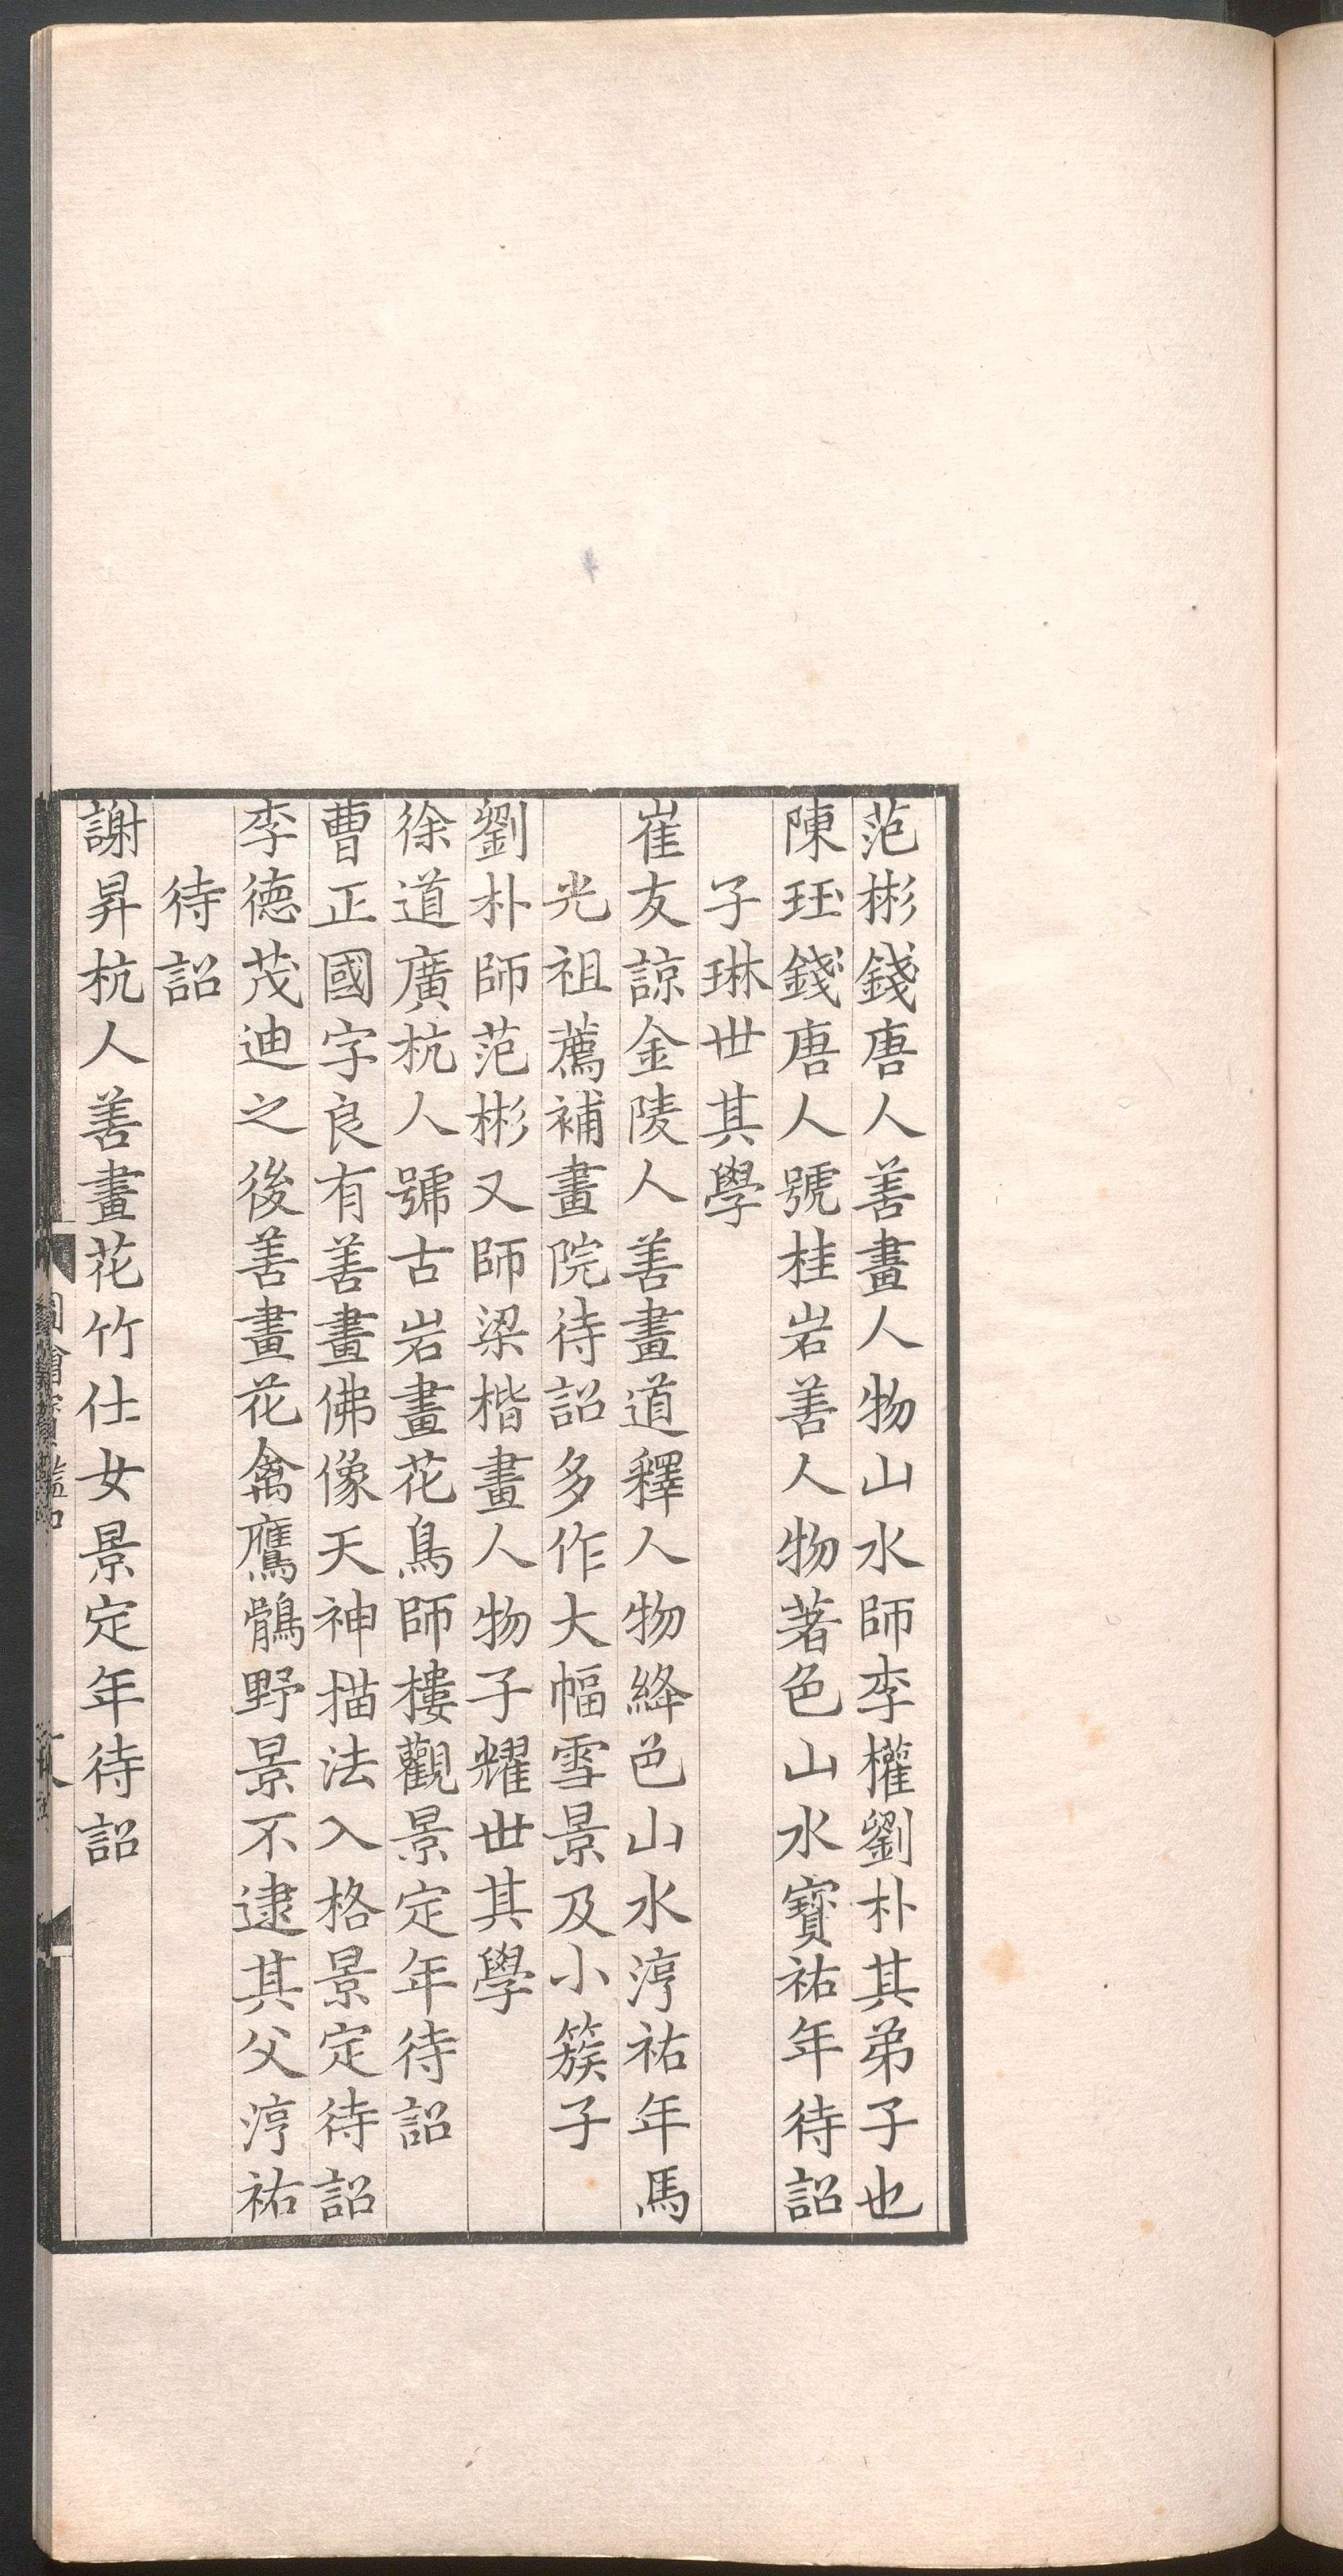 范彬錢唐人善畫人物山水師李權劉朴其弟子也
陳珏錢唐人號桂岩善人物著色山水寶祐年待詔
子琳世其學
崔友諒金陵人善畫道釋人物絳色山水淳祐年馬
光祖薦補畫院待詔多作大幅雪景及小簇子
劉朴師范彬又師梁楷畫人物子耀世其學
徐道廣杭人號古岩畫花鳥師樓觀景定年待詔
曹正國字良有善畫佛像天神描法入格景定待詔
李德茂迪之後善畫花禽鷹鶻野景不逮其父淳祐
待詔
謝昇杭人善畫花竹仕女景定年待詔